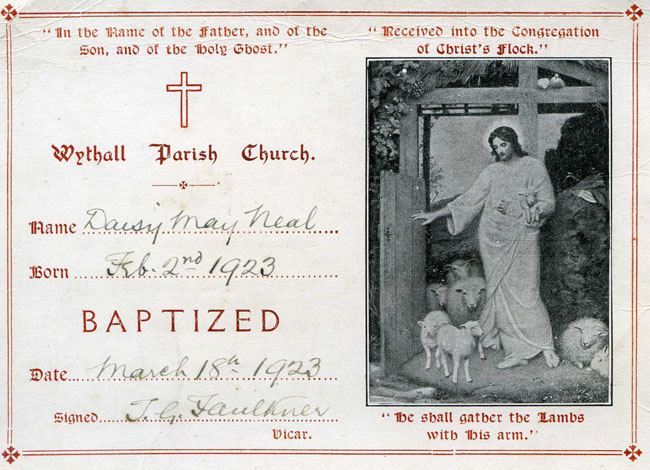 "In the Name of the Father, and of the
Son, and of the Holy Ghost."
Wythall Parish Church.
Name Daisy May Neal
Born Feb. 2nd 1923
BAPTIZED
Date March 18th 1923
Signed J. G. Faulkner
Vicar.
"Received into the Congregation
of Christ's Flock."
"He shall gather the Lambs
with His arm."